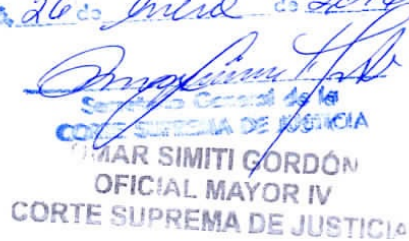 26 de Enero de
Secretaría General de la
CORTE SUPREMA DE JUSTICIA
OMAR SIMITI GORDÓN
OFICIAL MAYOR IV
CORTE SUPREMA DE JUSTICIA